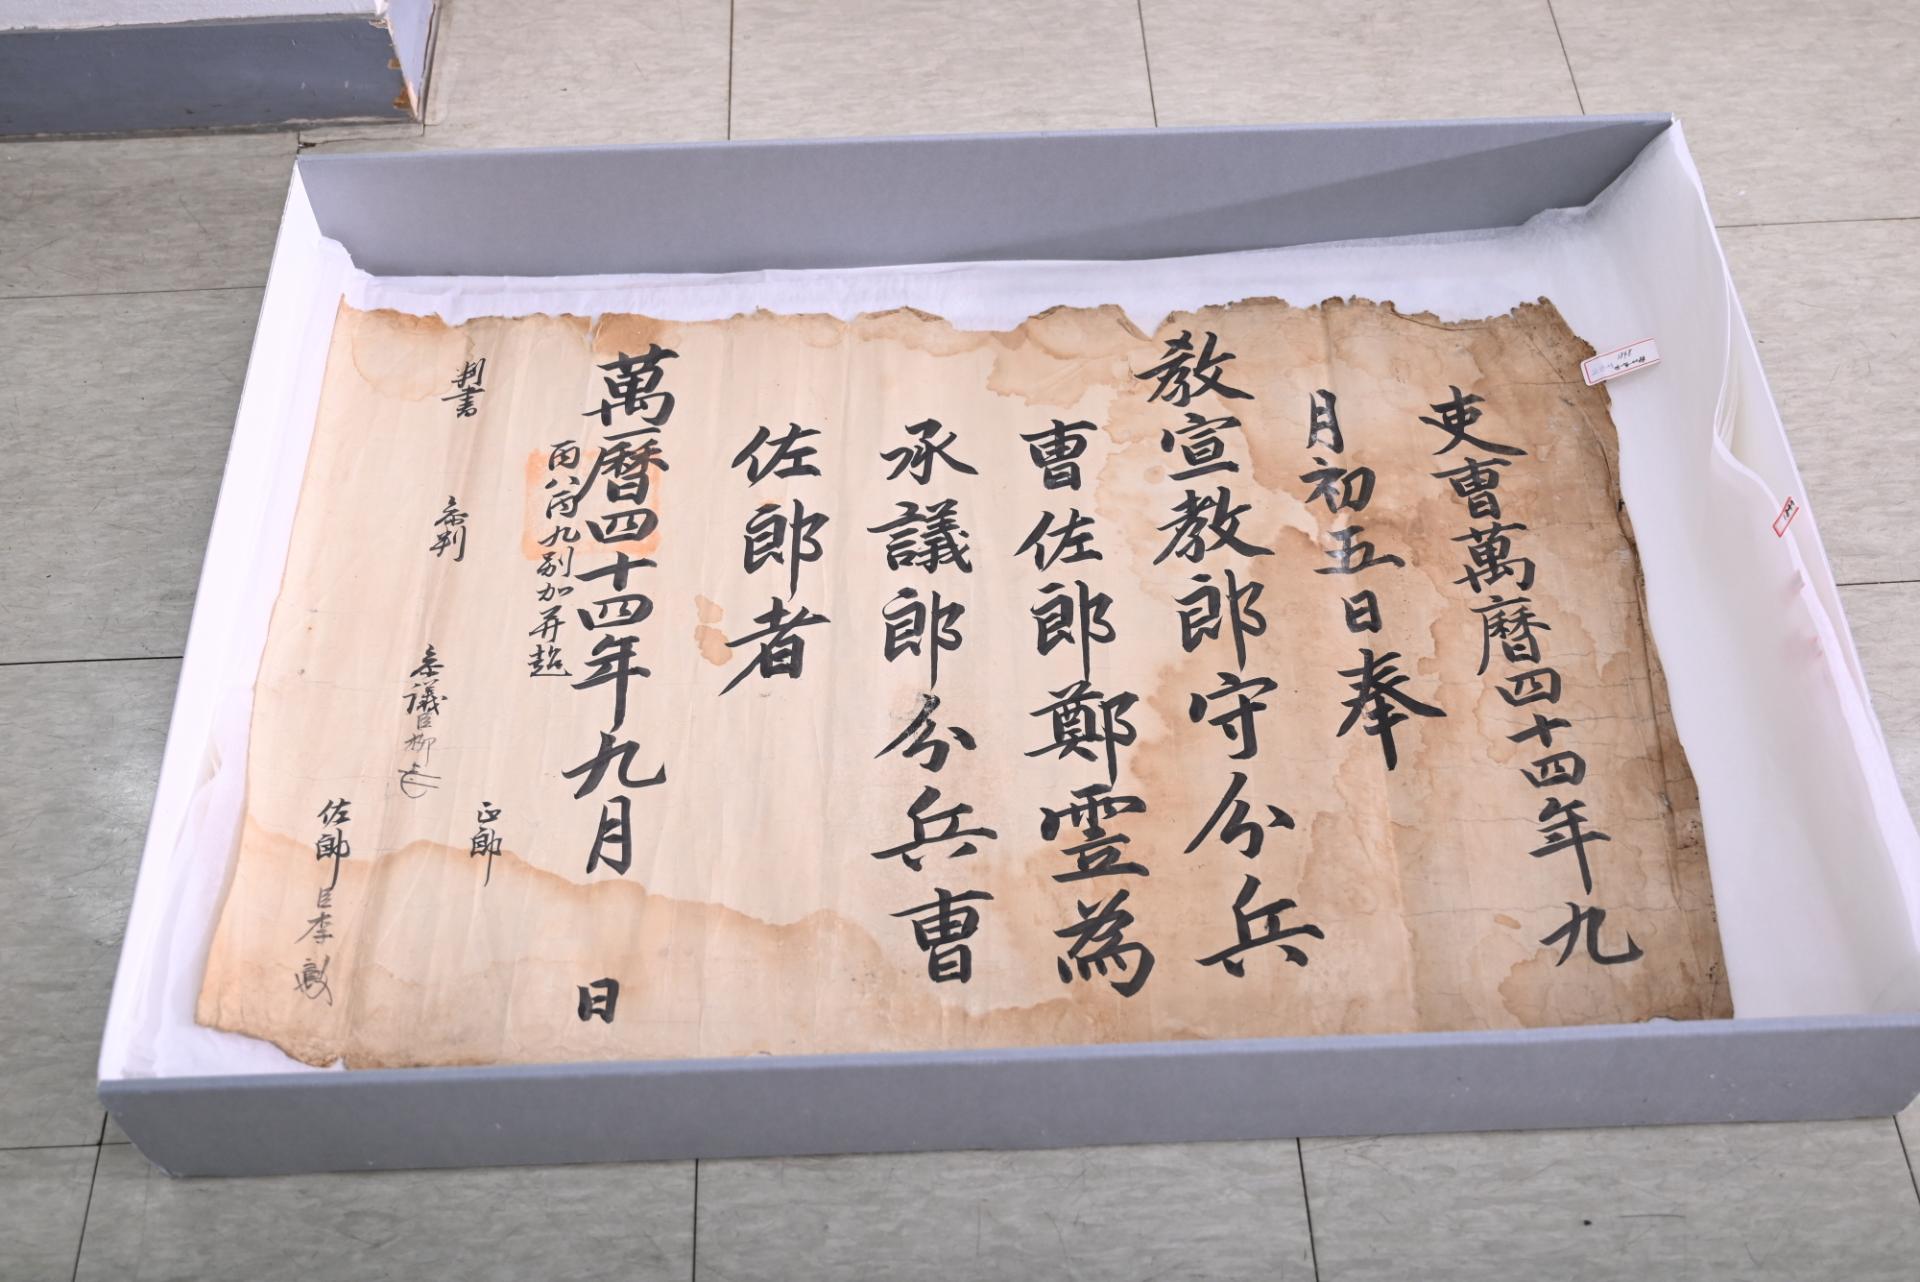 吏曺萬曆四十四年九
月初五日奉
敎宣敎郎守分兵
曺佐郎鄭雲為
承議郎分兵曺
佐郎者
萬曆四十四年九月 日
丙八丙九別加幷超
判書
叅判
叅議臣柳
正郎
佐郎臣李
1848